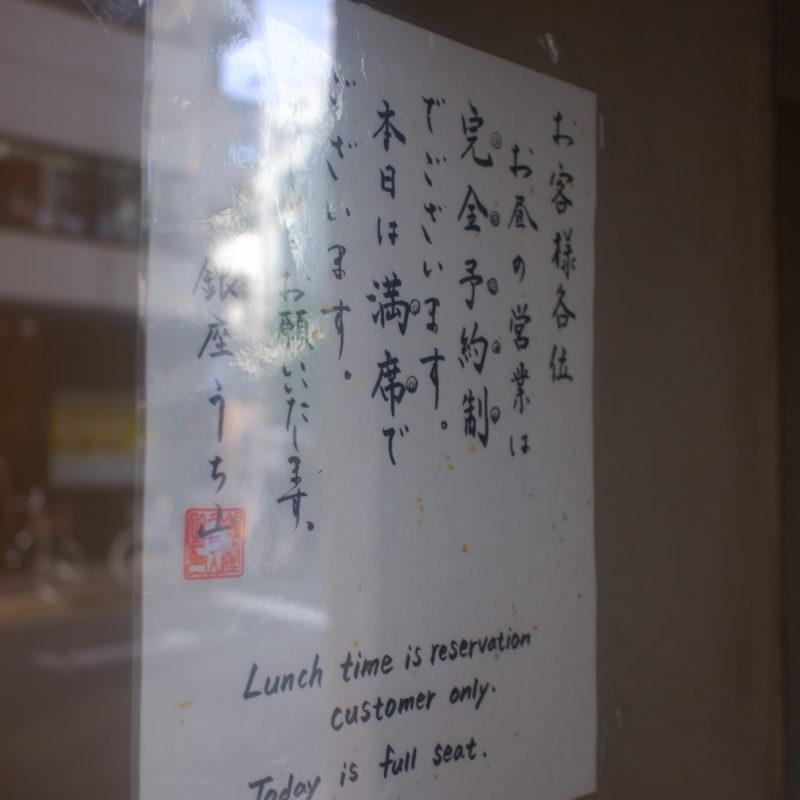 お客様各位
お昼の営業は
完全予約制
でございます。
本日は満席で
ございます。
お願いいたします。
銀座うち山
Lunch time is reservation
customer only.
Today is full seat.